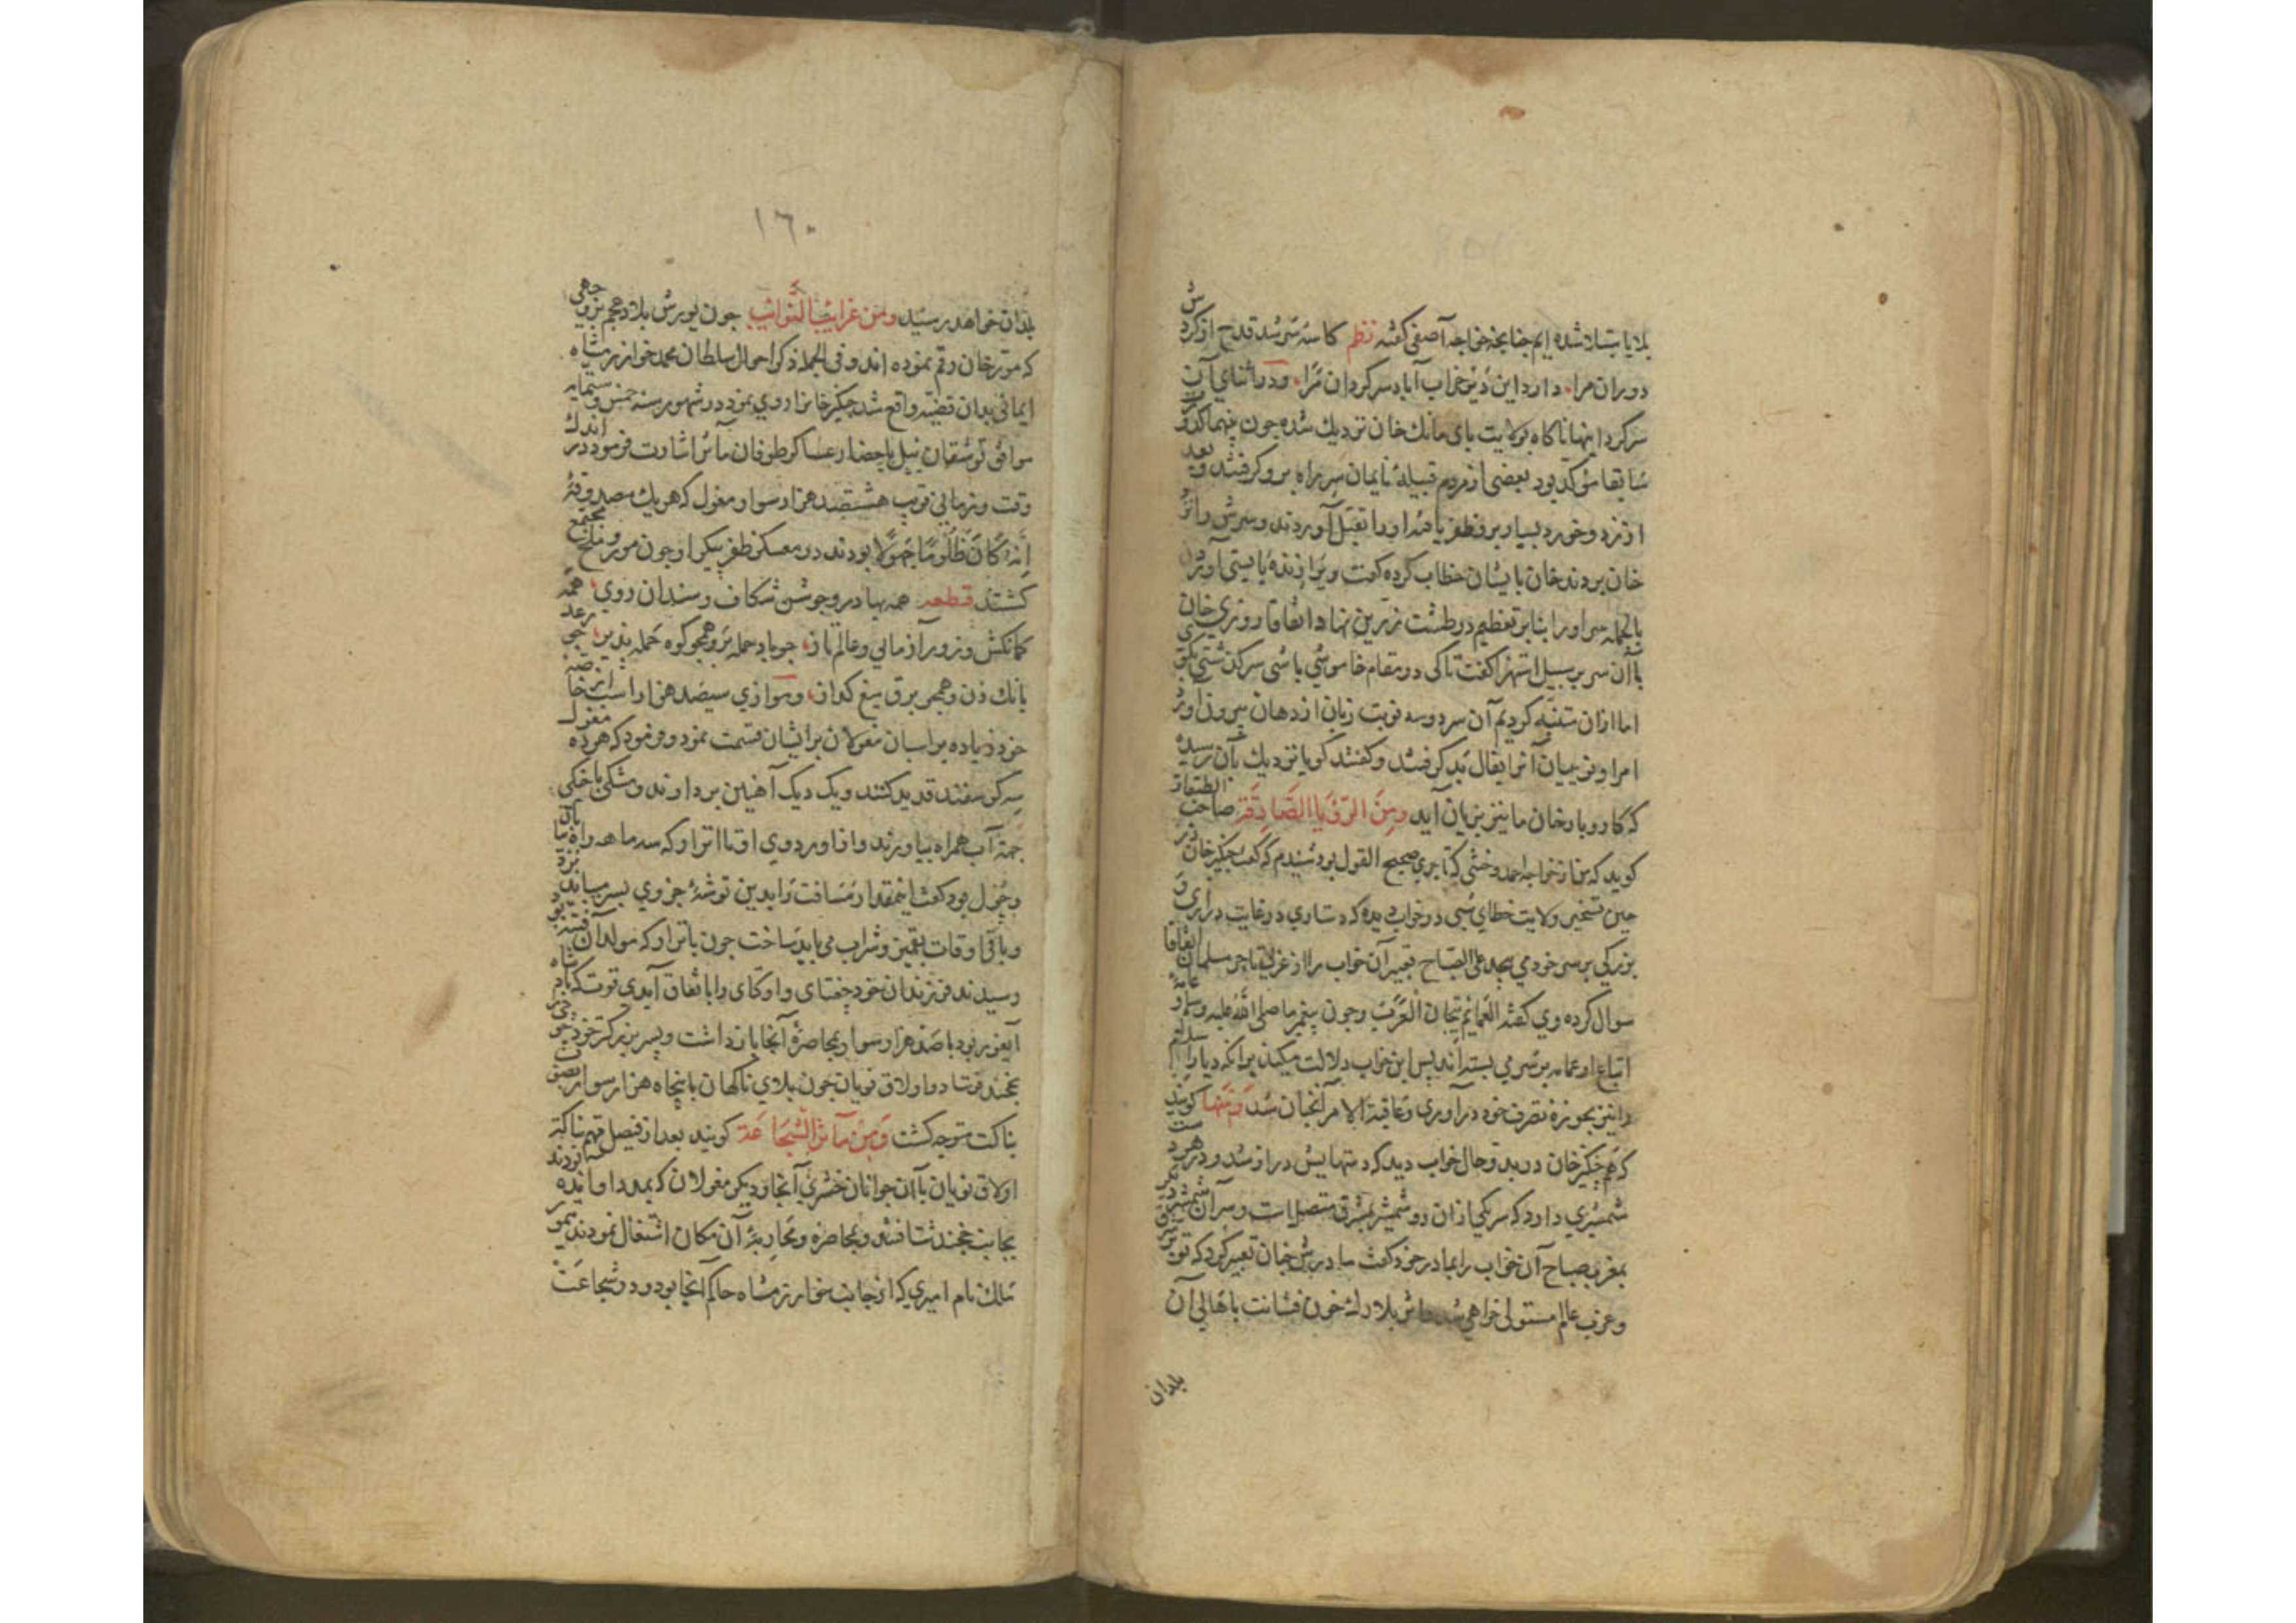 بلایا مبتلا شده ایم چنانچه خواجه آصفی گفته نظم کاسهٔ سر شد قدح از کردش
دوران مرا، دارد این دیر خراب آباد سرکردان مرا، ودر اثنای آن
سرکردانیها ناکاه بولایت بای مانک خان نزدیک شده چون بینهما
سابقا مؤکد بود بعضی از مردم قبیلهٔ نایمان سر راه برو کرفتند وبعد
از زد وخورد بسیار برو ظفر یافته اورا بقتل آوردند وسرش را نزد
خان بردند خان بایشان خطاب کرده کفت ویرا زنده بایستی آوردن
بالجمله سر اورا بنابر تعظیم در طشت زرین نهاد اتفاقا روزی خان
باآن سر بر سبیل استهزا کفت تاکی در مقام خاموشی باشی سرکذشتی بکوی
اما ازان متنبه کردیم آن سر دو سه نوبت زبان از دهان بیرون آورد
امرا ونویینان آنرا بفال بد کرفتند وکفتند کویا نزدیک بآن رسیده
که کاروبار خان ما نیز بزیان آید ومن الرؤیا الصادقة صاحب الطبقات
کوید که من از خواجه احمد وخشی که تاجری صحیح القول بود شنیدم که کفت چنکیز خان در
حین تسخیر ولایت خطای شبی در خواب دیده که دستاری در غایت درازی و
بزرکی بر سر خود می پیچد علی الصباح تعبیر آن خواب را از تاجر مسلمان اتفاقا
سوال کرده وی کفته العمائم تیجان العرب وچون پیغمبر ما صلی الله علیه وسلم و
اتباع او عمامه بر سر می بسته اند پس این خواب دلالت میکند برانکه دیار اسلام
را نیز بحوزهٔ تصرف خود در آوری وعاقبة الامر آنچنان شد ومنها کویند
که هم چنکیز خان در بدو حال خواب دید که دستهایش دراز شد ودر هر دست
شمشیری دارد که سر یکی ازان دو شمشیر بمشرق متصل است وسر آن شمشیر دیکر
بمغرب صباح آن خواب را بمادر خود کفت مادرش چنان تعبیر کرد که تو بر شرق
وغرب عالم مستولی خواهی شد بلارک خون فشانت باهالی آن
بلدان
١٦٠
بلدان خواهد رسید ومن غرائب النوائب چون یورش بلاد عجم بر وجهی
که مورخان رقم نموده اند وفی الجمله ذکر احوال سلطان محمد خوارزمشاه
ایمائی بدان قضیه واقع شد چنکیز خانرا روی نمود در شهور سنه خمس وستمایه
موافق توشقان ییل باحضار عساکر طوفان مآثر اشارت فرمود در اندک
وقت وزمانی قریب هشتصد هزار سوار مغول که هریک مصدوقهٔ
إنه کان ظلوما جهولا بودند در معسکر ظفر پیکر او چون مور وملخ مجتمع
کشتند قطعه همه بهادر وجوشن شکاف وسندان روی، همه
کمانکش وزور آزمای وعالم تاز، چو باد حمله بر وهمچو کوه حمله پذیر، چو رعد
بانک زن وهمچو برق تیغ کداز، وموازی سیصد هزار اسب خاصهٔ
خود زیاده بر اسبان مغولان برایشان قسمت نمود وفرمود که هر ده مغول
سه کوسفند قدید کنند ویک دیک آهنین بردارند ومشکی یا خیکی
جهة آب همراه بیاورند واز اوردوی او تا اترار که سه ماهه راه
وچول بود کفت اینمقدار مسافت را بدین توشهٔ جزوی بسر رسانید
وباقی اوقات بقمیز وشراب می باید ساخت چون باترار که مولد آن فتنه بود
رسیدند فرزندان خود چغتای واوکتای را باتفاق آیدی قوت که پادشاه
آیغور بود با صد هزار سوار بمحاصرهٔ آنجا بازداشت وپسر بزرکتر خود جوجی
بخجند فرستاد واولاق نویان چون بلای ناکهان با پنجاه هزار سوار
بناکت متوجه کشت ومن مآثر الشجاعة کویند بعد از فیصل مهم بناکت
اولاق نویان باآن جوانان حشری آنجا ودیکر مغولان که بمدد او آمده بودند
بجانب خجند شتافتند وبمحاصره ومحاربهٔ آن مکان اشتغال نمودند تیمور
ملک نام امیری که از جانب خوارزمشاه حاکم آنجا بود ودر شجاعت